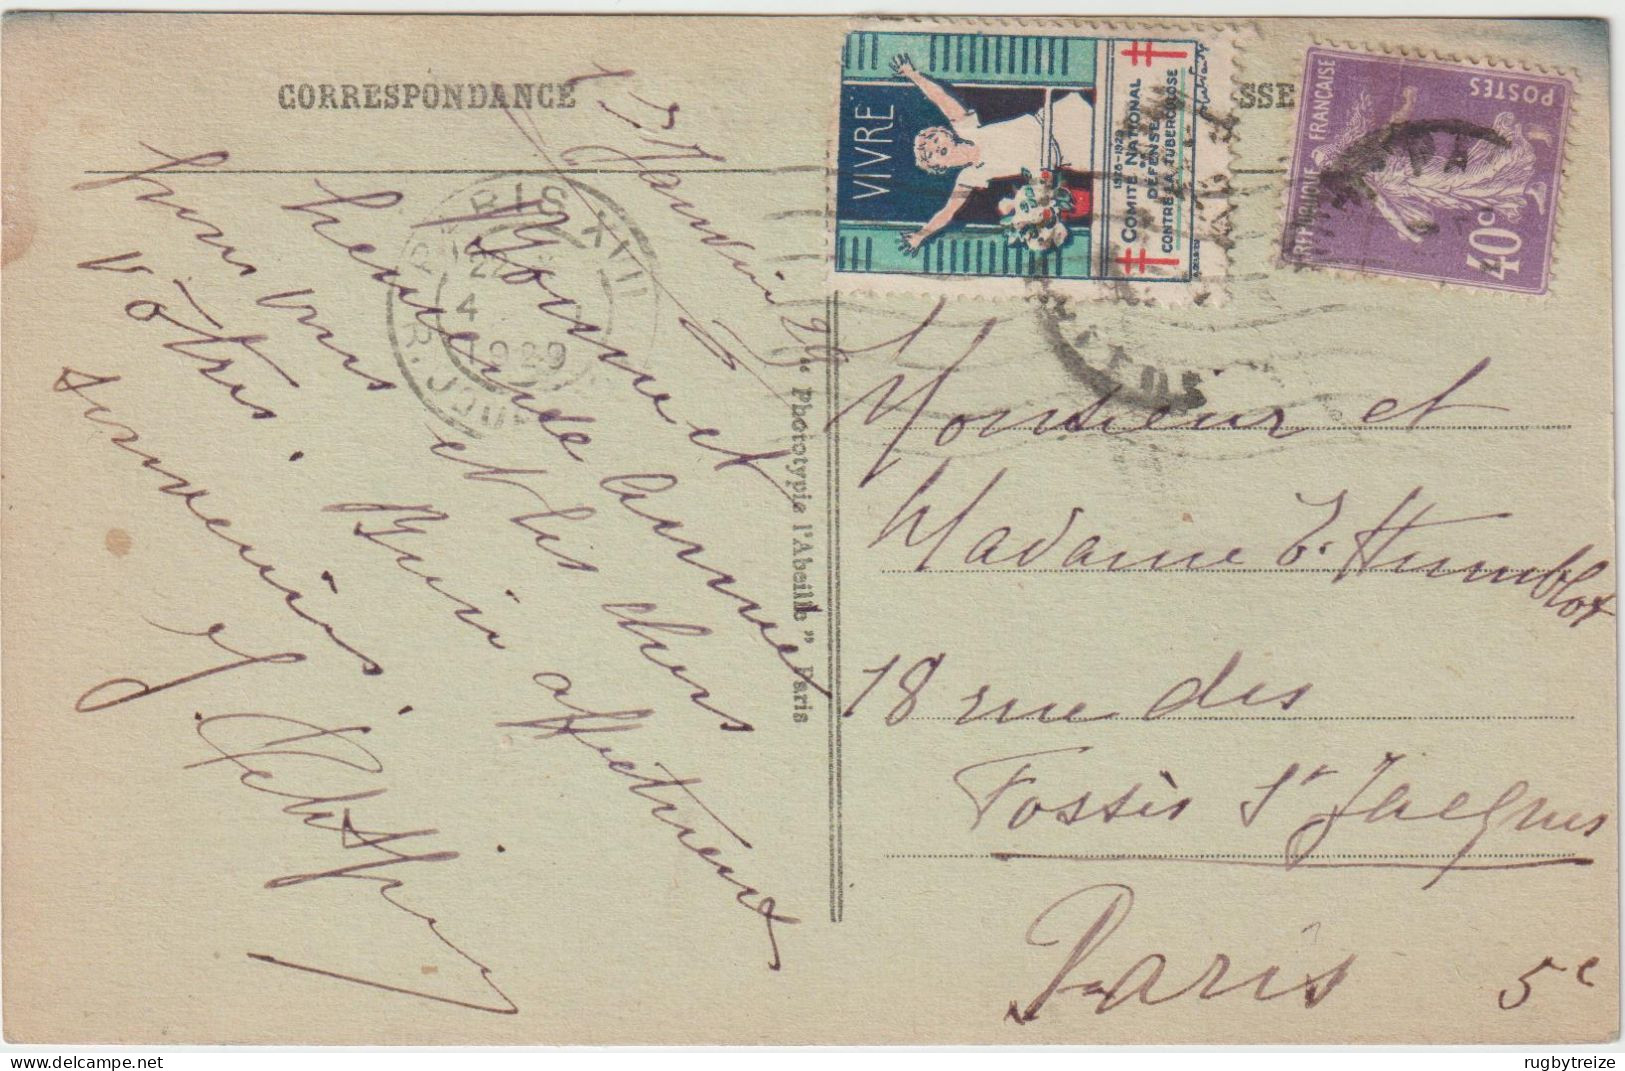 CORRESPONDANCE
SSE
1 Janvier 29
Bonne et
heureuse année
pour vous et les chers
vôtres. Bien affectueux
souvenirs.
PARIS XVII
R. JOU
4
1929
"Phototypie l'Abeille" Paris
VIVRE
1928-1929
COMITÉ NATIONAL
DE
DÉFENSE
CONTRE LA TUBERCULOSE
RÉPUBLIQUE FRANÇAISE
POSTES
40c
PA
Monsieur et
Madame E. Humblot
18 rue des
Fossés St Jacques
Paris 5e
rugbytreize